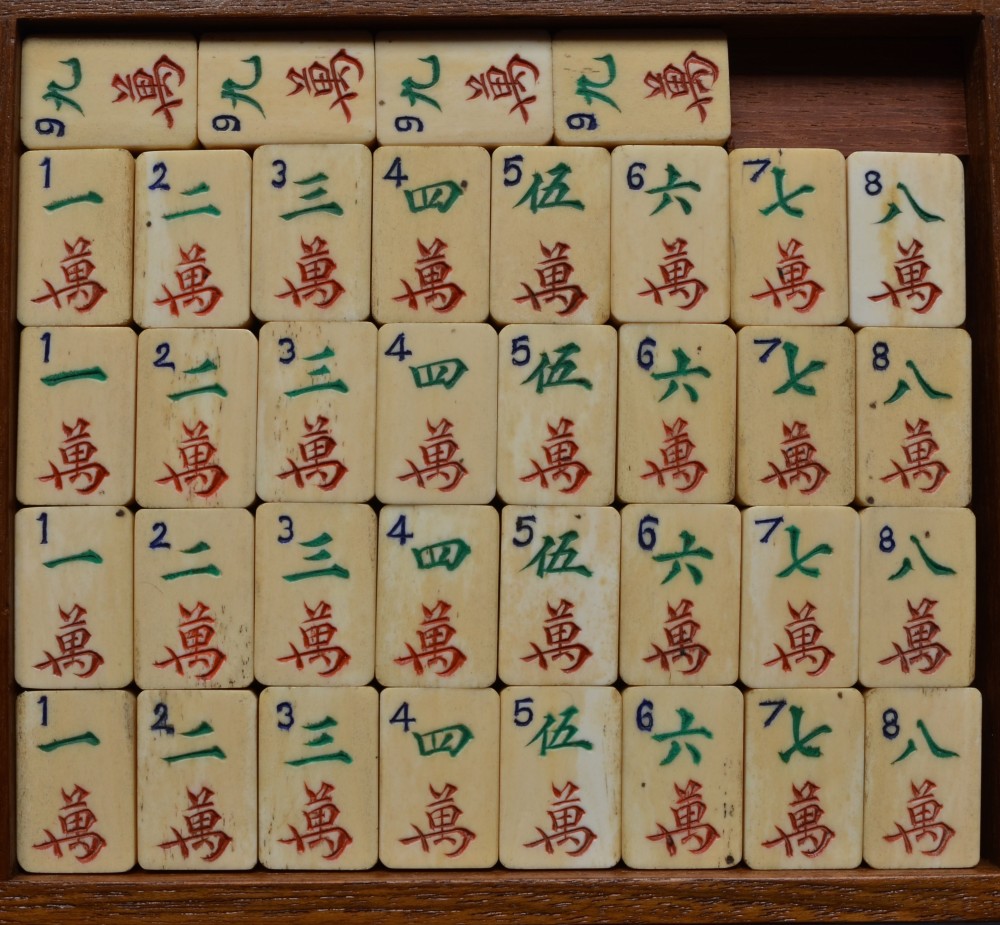 9 九 萬 9 九 萬 9 九 萬 9 九 萬
1 一 2 二 3 三 4 四 5 伍 6 六 7 七 8 八
萬 萬 萬 萬 萬 萬 萬 萬
1 一 2 二 3 三 4 四 5 伍 6 六 7 七 8 八
萬 萬 萬 萬 萬 萬 萬 萬
1 一 2 二 3 三 4 四 5 伍 6 六 7 七 8 八
萬 萬 萬 萬 萬 萬 萬 萬
1 一 2 二 3 三 4 四 5 伍 6 六 7 七 8 八
萬 萬 萬 萬 萬 萬 萬 萬